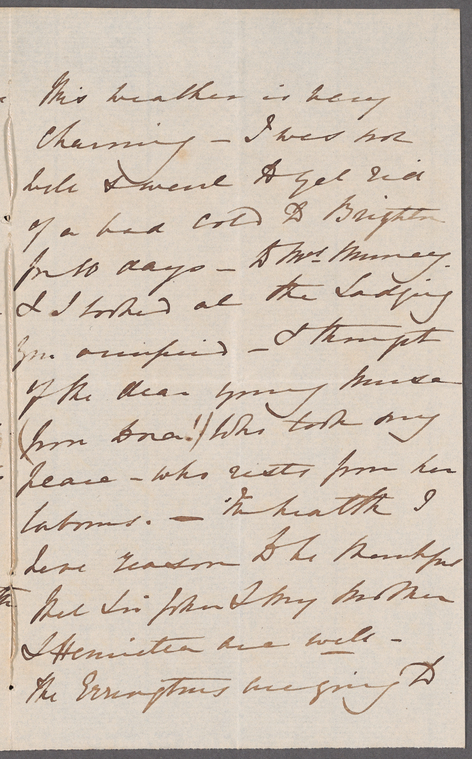 This weather is very
Charming – I was not
well & went to get rid
of a bad cold to Brighton
for 10 days – to Mrs. Murray
& I looked at the Lodging
you occupied – & thought
of the dear young Nurse
(poor Dora!) Who took my
place – who rests from her
labours. – In health I
have reason to be thankful
that Sir John & My Mother
& Henrietta are well –
the Erringtons are going to